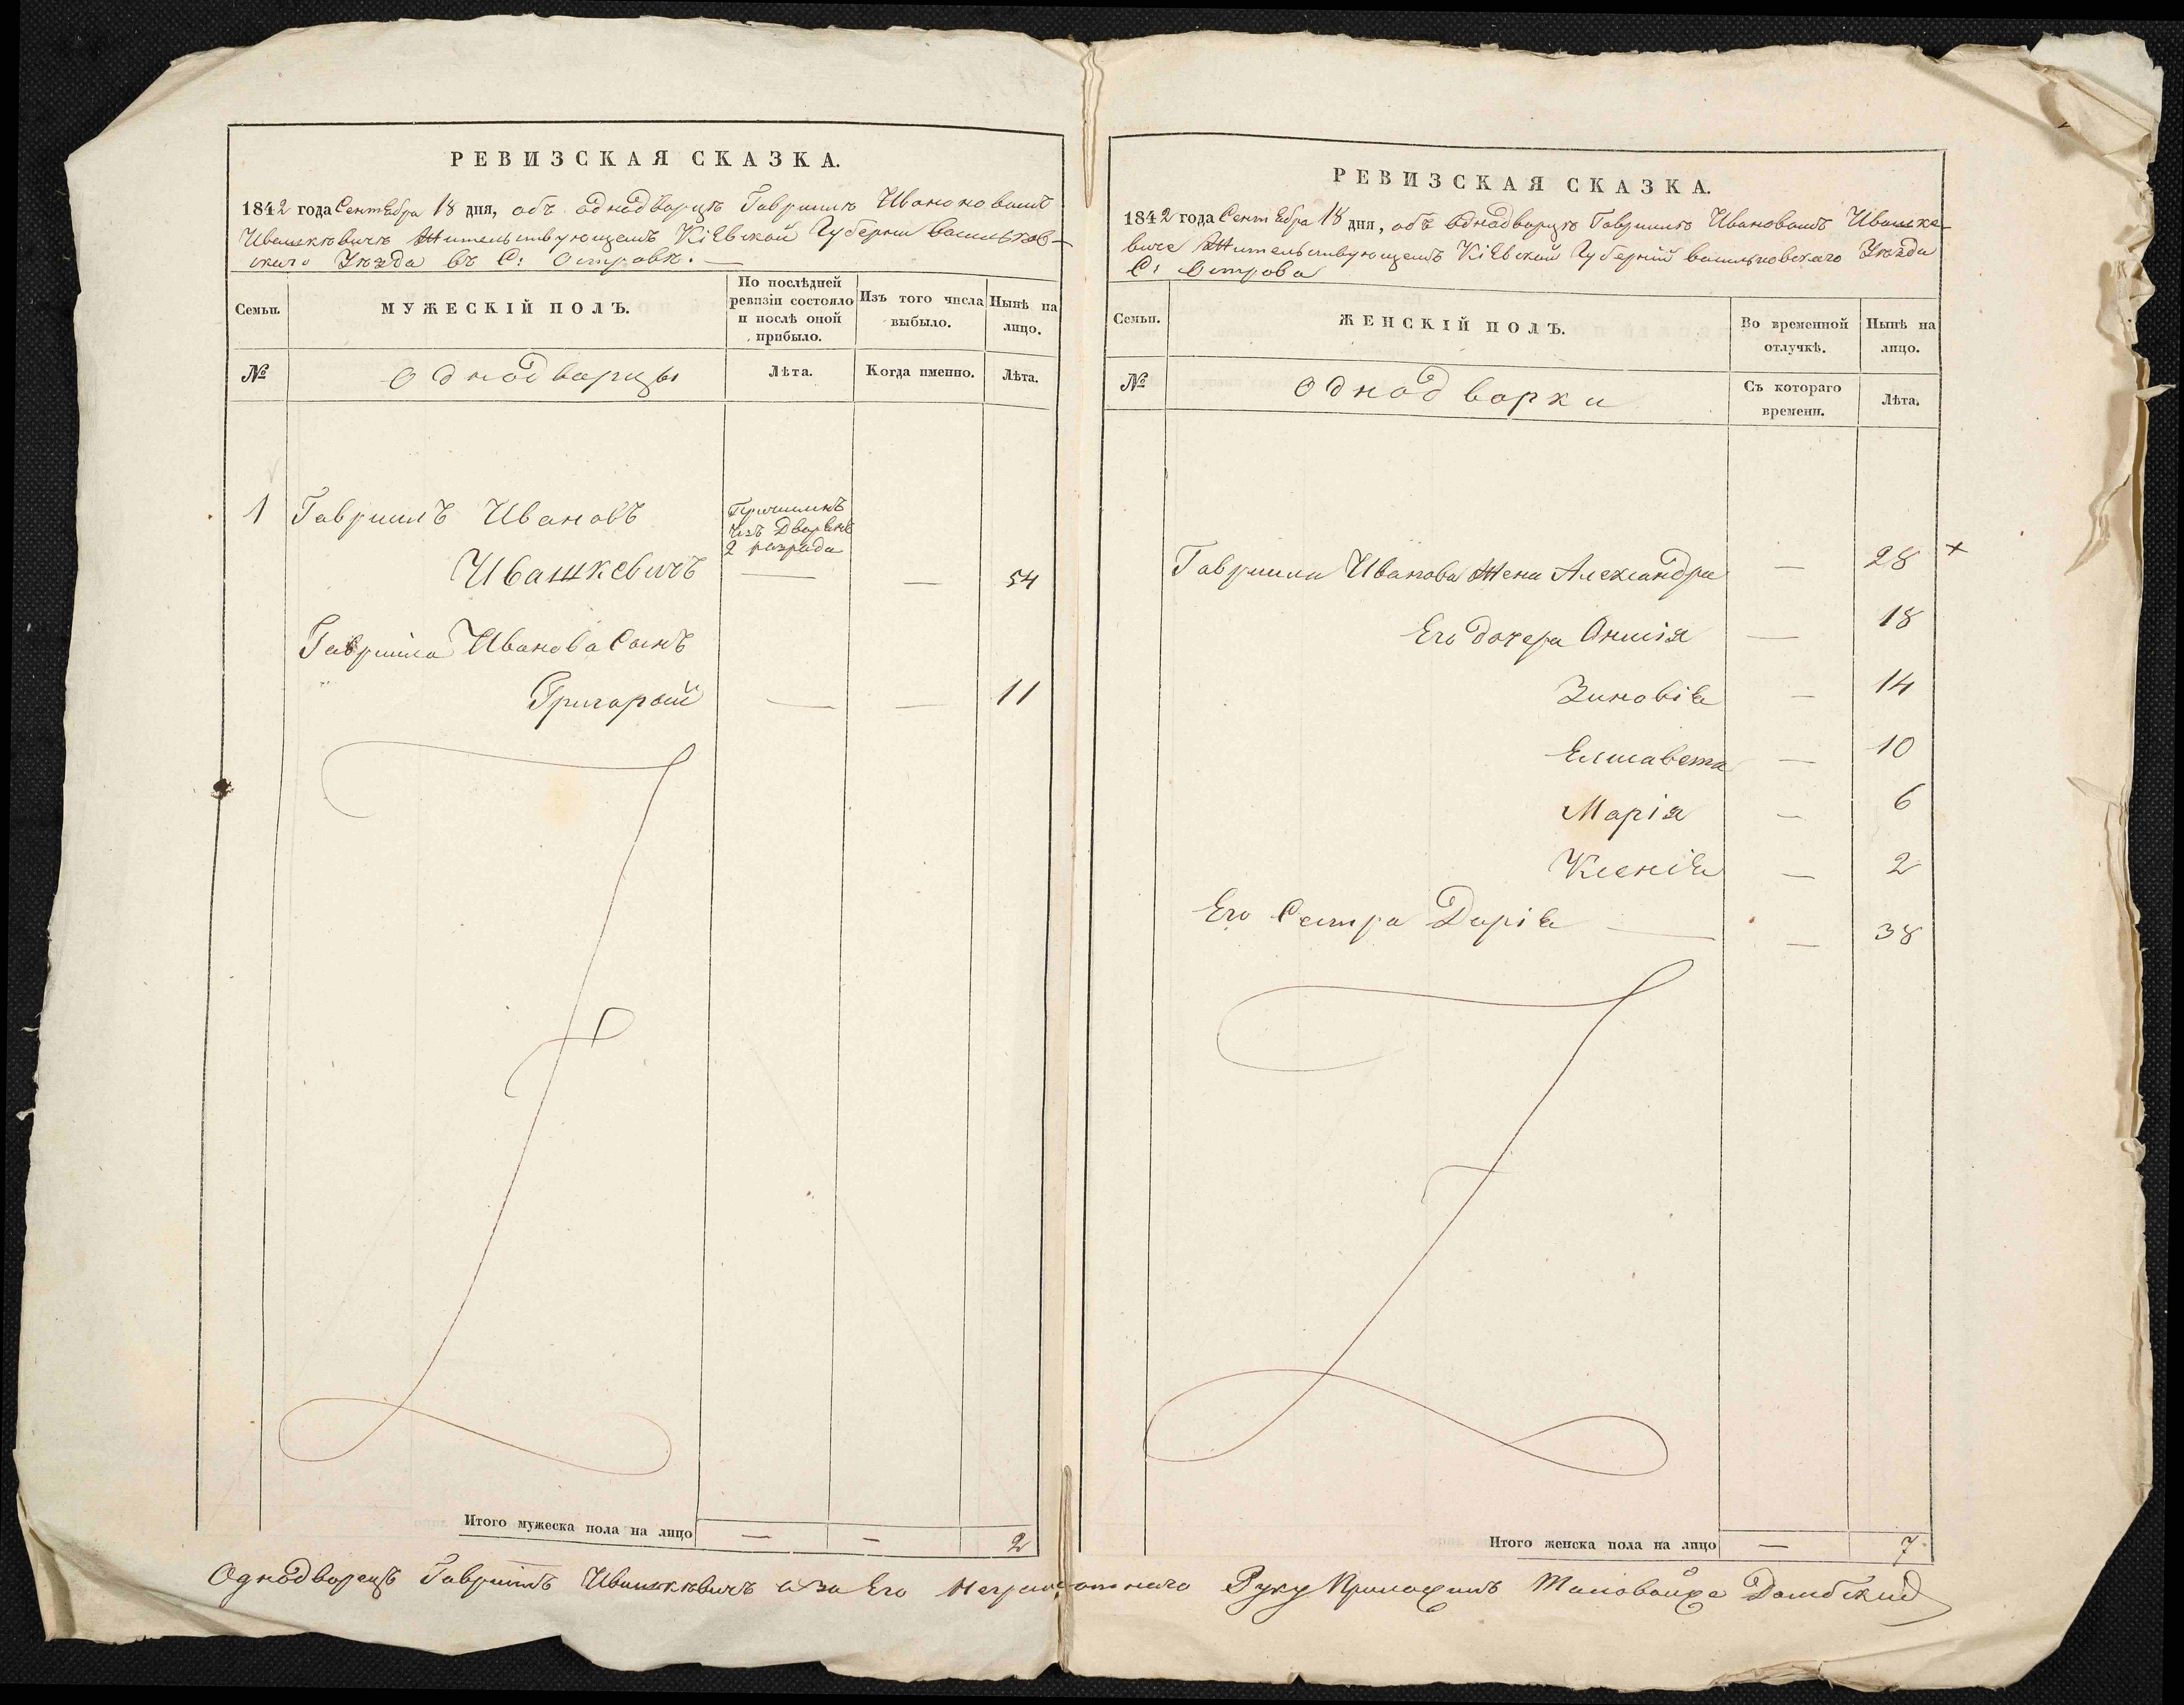 РЕВИЗСКАЯ СКАЗКА.
1842 года Сентебра 18 дня, объ однодворцѣ Гавриилѣ Ивононовомъ
Ивашкѣвичѣ Жительствующемъ Кіевской Губерни Васильков-
скаго Уѣзда въ С: Островѣ.
Семьи.
МУЖЕСКІЙ ПОЛЪ.
По послѣдней ревизіи состояло и послѣ оной прибыло.
Изъ того числа выбыло.
Нынѣ на лицо.
№
Однодварцы
Лѣта.
Когда именно.
Лѣта.
1 Гавриилъ Ивановъ
Причисленъ
изъ Дворянъ
2 разрада
Ивашкевичъ — — 54
Гавриила Иванова Сынъ
Григорой — — 11
Итого мужеска пола на лицо — — 2
РЕВИЗСКАЯ СКАЗКА.
1842 года Сентебра 18 дня, объ Однодворцѣ Гавриилѣ Ивановомъ Ивашке-
виче Жительствующемъ Кіевской Губерній Васильковскаго Уѣзда
С: Острова
Семьи.
ЖЕНСКІЙ ПОЛЪ.
Во временной отлучкѣ.
Нынѣ на лицо.
№
Однодворки
Съ котораго времени.
Лѣта.
Гавриила Иванова Жена Александра — 28 +
Его дочера Онисія — 18
Зиновіа — 14
Елисавета — 10
Марія — 6
Ксеніа — 2
Его Сестра Даріа — — 38
Итого женска пола на лицо — 7
Однодворецъ Гавриилъ Ивашкѣвичъ а за Его Неграмотнаго Руку Приложилъ Домбский